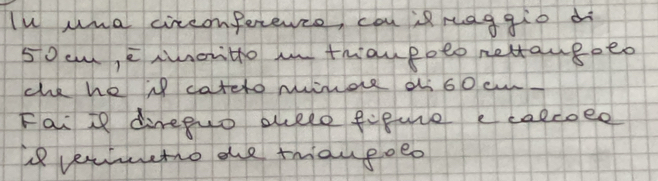 In una circonferenza, con il raggio di
50 cm, è inscritto un triangolo rettangolo
che ha il cateto minore di 60 cm_
Fai il disegno della figura e calcola
il perimetro del triangolo